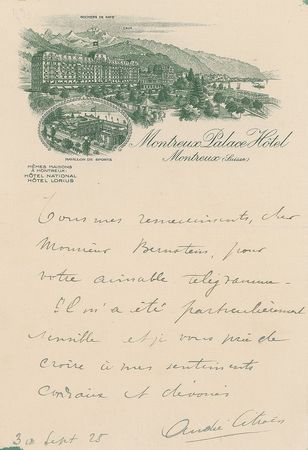 ROCHERS DE NAYE
CAUX
Montreux Palace Hôtel
Montreux (Suisse)
PAVILLON DE SPORTS
MÊMES MAISONS
À MONTREUX:
HÔTEL NATIONAL
HÔTEL LORIUS
Tous mes remerciements, cher
Monsieur Bernstein, pour
votre aimable télégramme –
Il m'a été particulièrement
sensible et je vous prie de
croire à mes sentiments
cordiaux et dévoués
André Citroën
30 Sept 28